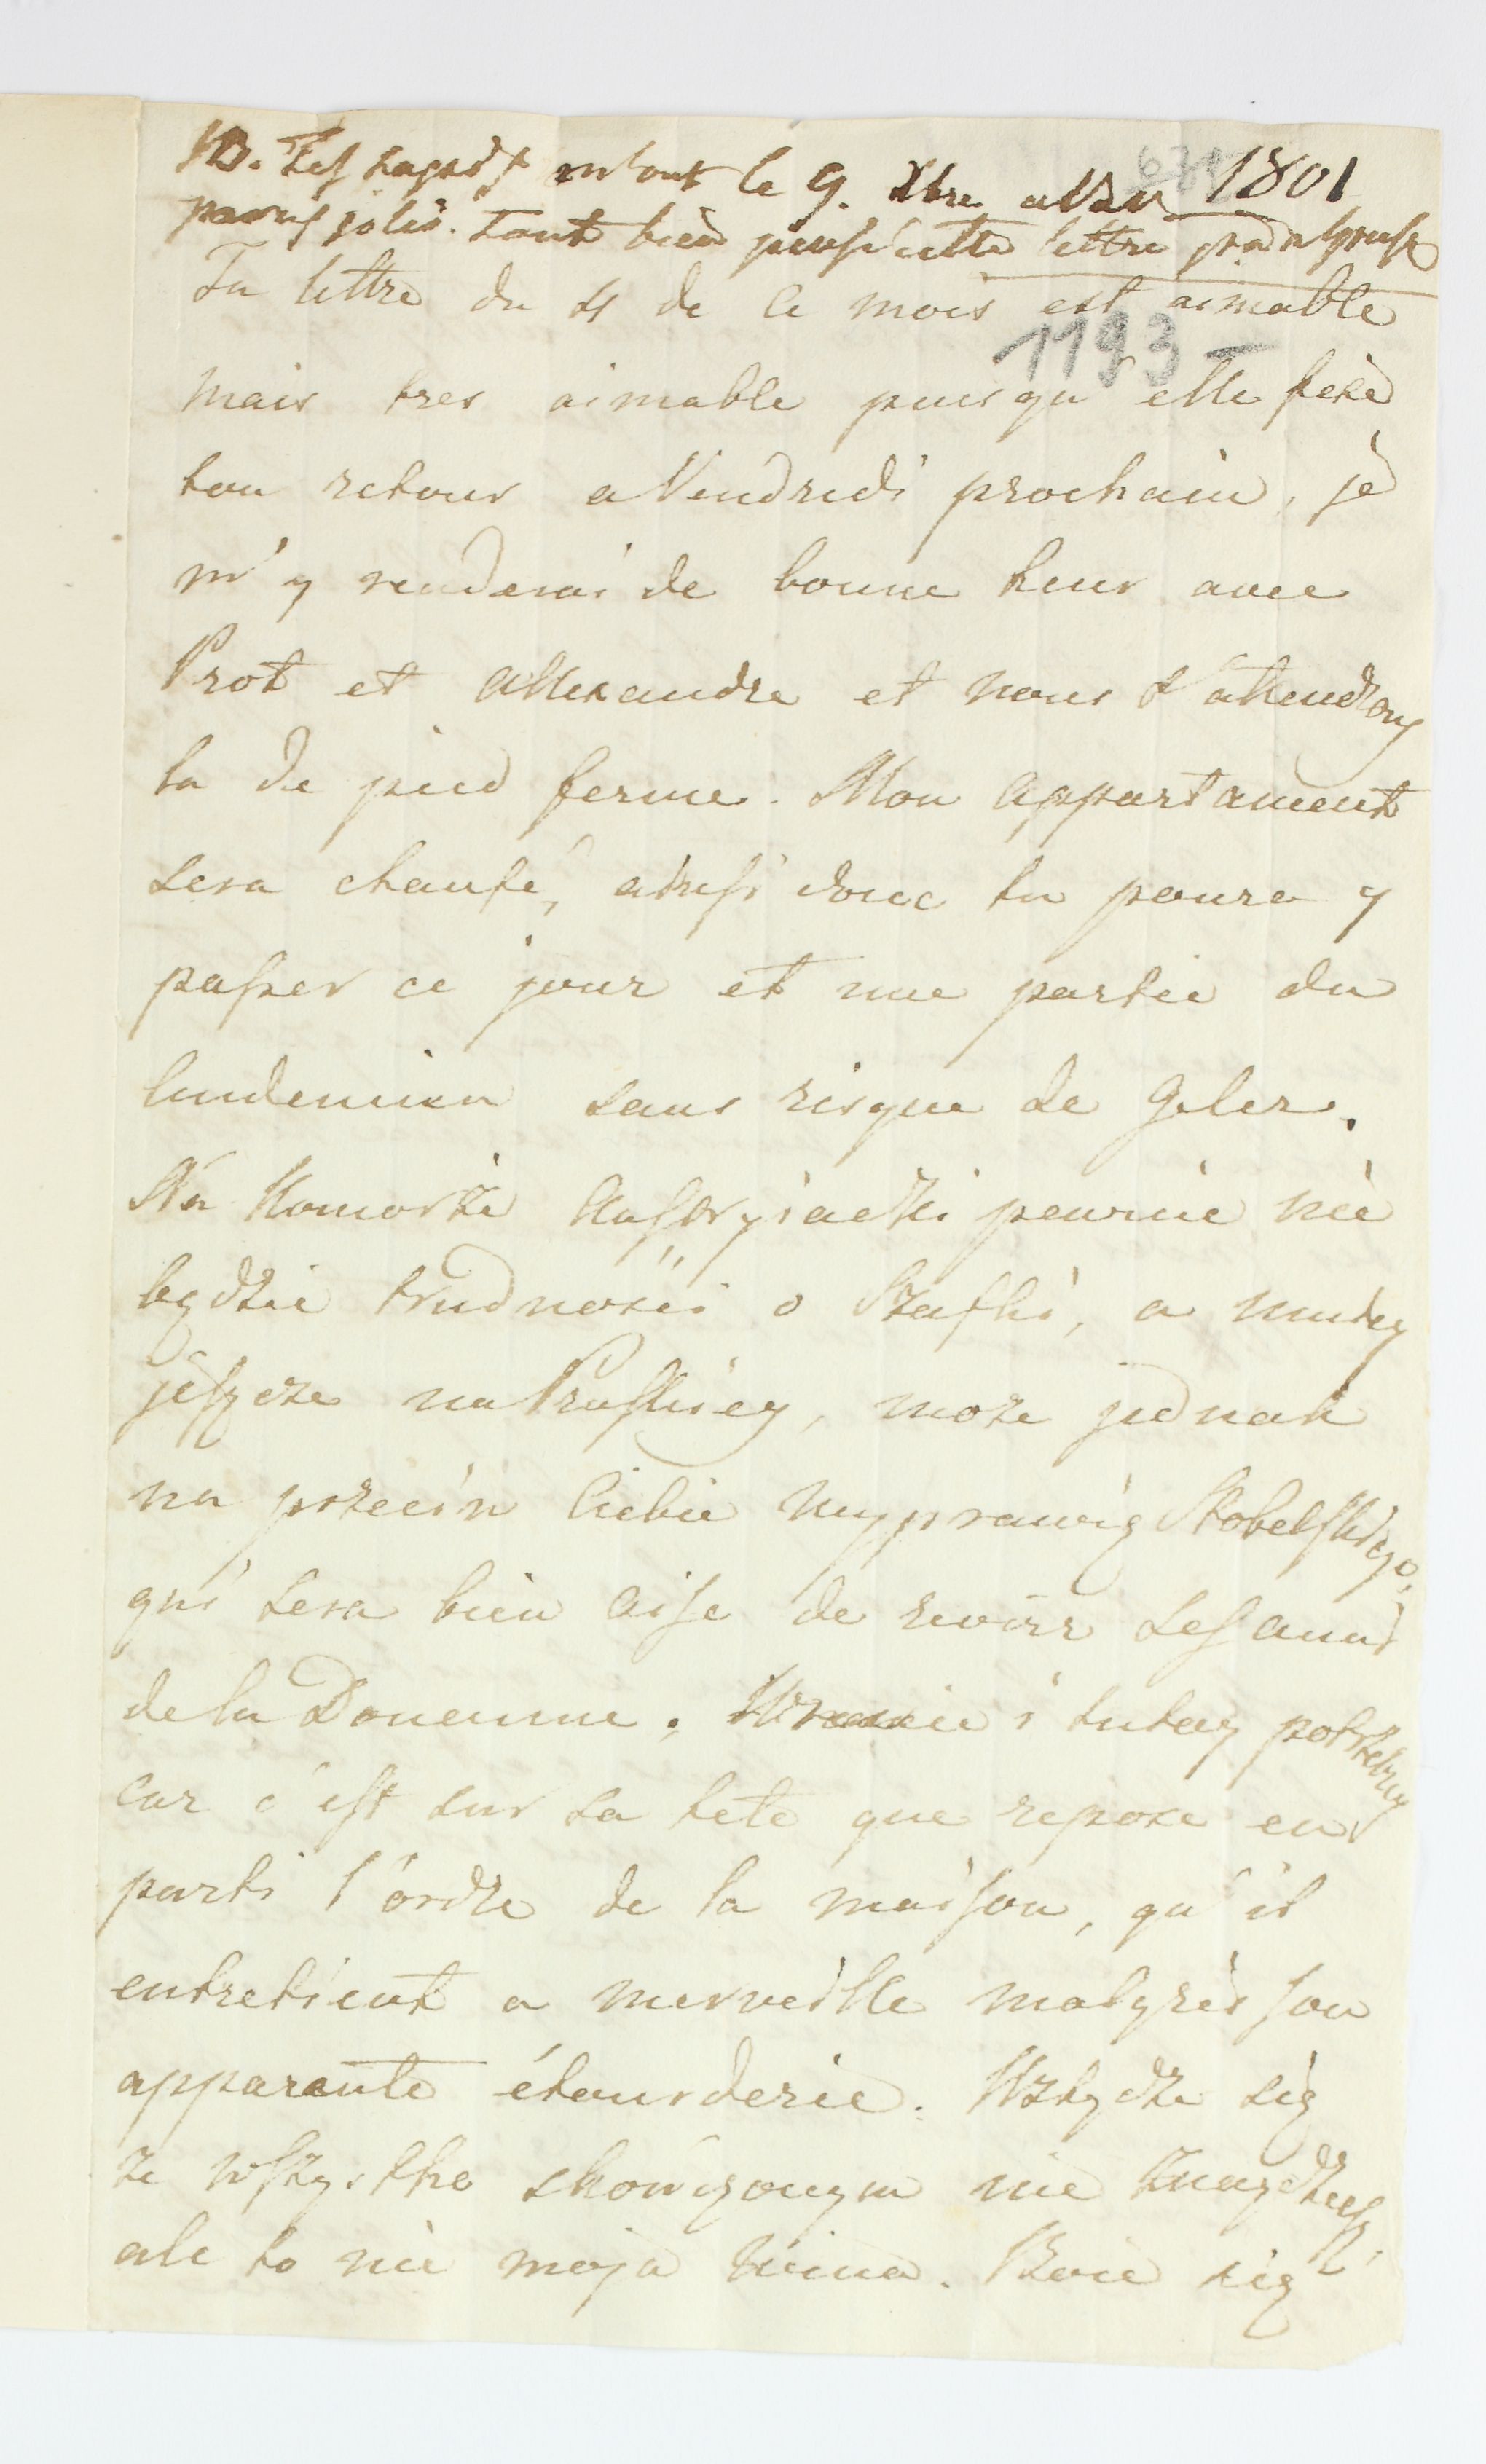 NB. le 9. Xbre 1801
jolie. Tout bien pensé cette lettre
Ta lettre du 4 de ce mois est aimable
1193
mais tres aimable puisqu'elle fixe
ton retour a Vendredi prochain, je
m'y renderai de bonne heur avec
Prot et Allexandre et nous t'attendrons
la de pied ferme. Mon appartament
sera chaufé, ainsi donc tu poura y
passer ce jour et une partie du
lendemien sans risque de geler.
Na Komorze Austryiacki pewnie nie
będzie trudności o Szafki, a mniey
jeszcze na Pruskiey, może jednak
na przeciw Ciebie wyprawię Skobelskiego,
qui sera bien aise de revoir ses amis
de la Douenne. i tutay potrzebny
car c'est sur sa tete que repose en
parti l'ordre de la maison, qu'il
entretient a merveille malgrès son
apparente étourderie. Wstydze się
że wszystko skończonym nie znaydziesz,
ale to nie moja wina. Boie się